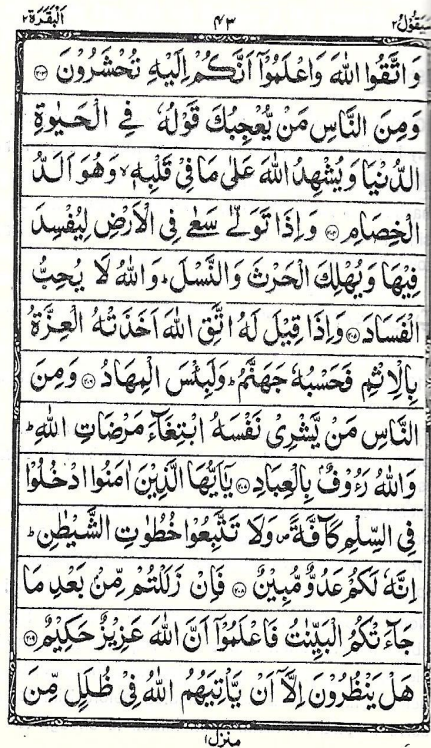 اَلْبَقَرَة٢ ٤٣ سَيَقُوْلُ٢
وَاتَّقُوا اللّٰهَ وَاعْلَمُوْۤا اَنَّكُمْ اِلَيْهِ تُحْشَرُوْنَ ۝٢٠٣
وَمِنَ النَّاسِ مَنْ يُّعْجِبُكَ قَوْلُهٗ فِي الْحَيٰوةِ
الدُّنْيَا وَيُشْهِدُ اللّٰهَ عَلٰى مَا فِيْ قَلْبِهٖ ۙ وَهُوَ اَلَدُّ
الْخِصَامِ ۝٢٠٤ وَاِذَا تَوَلّٰى سَعٰى فِي الْاَرْضِ لِيُفْسِدَ
فِيْهَا وَيُهْلِكَ الْحَرْثَ وَالنَّسْلَ ؕ وَاللّٰهُ لَا يُحِبُّ
الْفَسَادَ ۝٢٠٥ وَاِذَا قِيْلَ لَهُ اتَّقِ اللّٰهَ اَخَذَتْهُ الْعِزَّةُ
بِالْاِثْمِ فَحَسْبُهٗ جَهَنَّمُ ؕ وَلَبِئْسَ الْمِهَادُ ۝٢٠٦ وَمِنَ
النَّاسِ مَنْ يَّشْرِيْ نَفْسَهُ ابْتِغَآءَ مَرْضَاتِ اللّٰهِ ؕ
وَاللّٰهُ رَءُوْفٌۢ بِالْعِبَادِ ۝٢٠٧ يٰۤاَيُّهَا الَّذِيْنَ اٰمَنُوا ادْخُلُوْا
فِي السِّلْمِ كَآفَّةً ۪ وَلَا تَتَّبِعُوْا خُطُوٰتِ الشَّيْطٰنِ ؕ
اِنَّهٗ لَكُمْ عَدُوٌّ مُّبِيْنٌ ۝٢٠٨ فَاِنْ زَلَلْتُمْ مِّنْۢ بَعْدِ مَا
جَآءَتْكُمُ الْبَيِّنٰتُ فَاعْلَمُوْۤا اَنَّ اللّٰهَ عَزِيْزٌ حَكِيْمٌ ۝٢٠٩
هَلْ يَنْظُرُوْنَ اِلَّاۤ اَنْ يَّاْتِيَهُمُ اللّٰهُ فِيْ ظُلَلٍ مِّنَ
منزل١